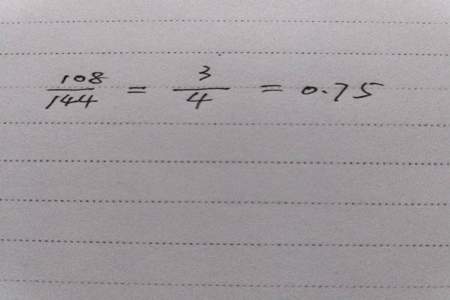 108/144 = 3/4 = 0.75